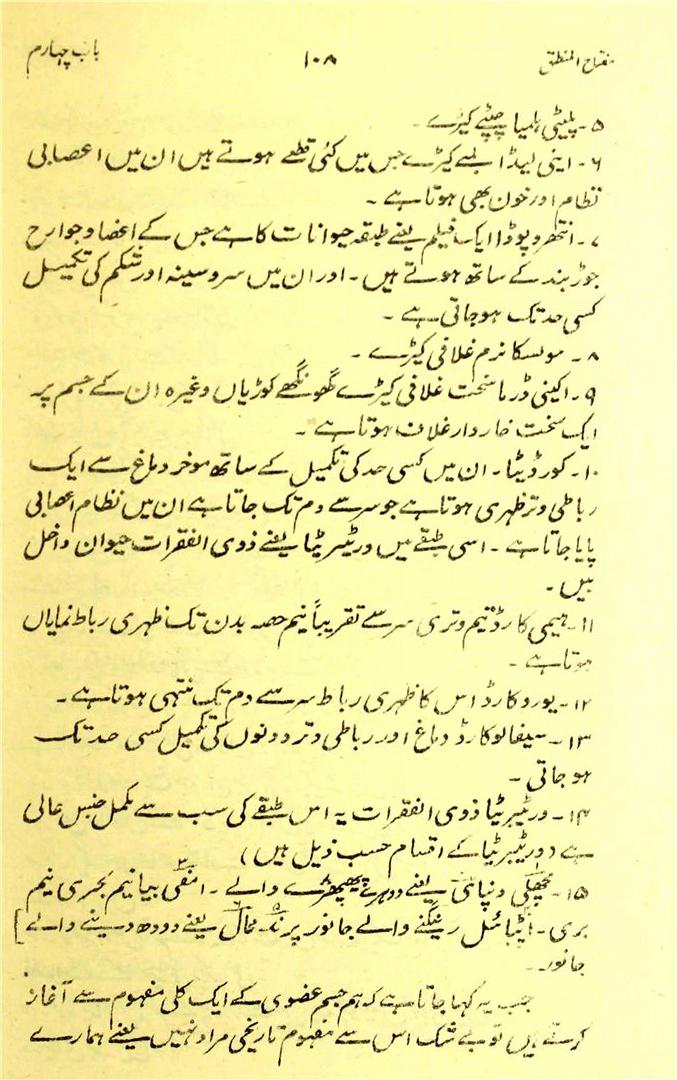 مفتاح المنطق ۱۰۸ باب چہارم
۵۔ پلیٹی ہلمیا چپٹے کیڑے۔
۶۔ اینی لیڈا لمبے کیڑے جس میں کئی قطعے ہوتے ہیں ان میں اعصابی
نظام اور خون بھی ہوتا ہے۔
۷۔ انتھروپوڈا ایک فیلم یعنے طبقہ حیوانات کا ہے جس کے اعضا و جوارح
جوڑ بند کے ساتھ ہوتے ہیں۔ اور ان میں سر و سینہ اور شکم کی تکمیل
کسی حد تک ہوجاتی ہے۔
۸۔ مولسکا نرم غلافی کیڑے۔
۹۔ اکینی ڈرما سخت غلافی کیڑے گھونگھے کوڑیاں وغیرہ ان کے جسم پر
ایک سخت خاردار غلاف ہوتا ہے۔
۱۰۔ کورڈیٹا۔ ان میں کسی حد کی تکمیل کے ساتھ موخر دماغ سے ایک
رباطی وتر ظہری ہوتا ہے جو سر سے دم تک جاتا ہے ان میں نظام اعصابی
پایا جاتا ہے۔ اسی طبقے میں ورٹیبریٹا یعنے ذوی الفقرات حیوان داخل
ہیں۔
۱۱۔ ہیمی کارڈ نیم وتری سر سے تقریباً نیم حصہ بدن تک ظہری رباط نمایاں
ہوتا ہے۔
۱۲۔ یوروکارڈ اس کا ظہری رباط سر سے دم تک منتہی ہوتا ہے۔
۱۳۔ سیفالوکارڈ دماغ اور رباطی وتر دونوں کی تکمیل کسی حد تک
ہو جاتی۔
۱۴۔ ورٹیبریٹا ذوی الفقرات یہ اس طبقے کی سب سے مکمل جنس عالی
ہے (ورٹیبریٹا کے اقسام حسب ذیل ہیں)
۱۵۔ مچھلی یعنے دوہرے پھیپھڑے والے۔ امفی بیا نیم بحری نیم
بری۔ رینگنے والے جانور پرند۔ یعنے دودھ دینے والے]
جانور۔
جب یہ کہا جاتا ہے کہ ہم جسم عضوی کے ایک کلی مفہوم سے آغاز
کرتے ہیں تو بے شک اس سے مفہوم تاریخی مراد نہیں یعنے ہمارے